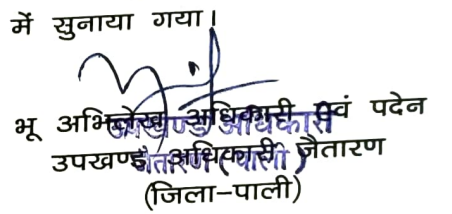 में सुनाया गया।
भू अभिलेख अधिकारी एवं पदेन
उपखण्ड अधिकारी
उपखण्ड अधिकारी जैतारण
जैतारण (पाली)
(जिला-पाली)